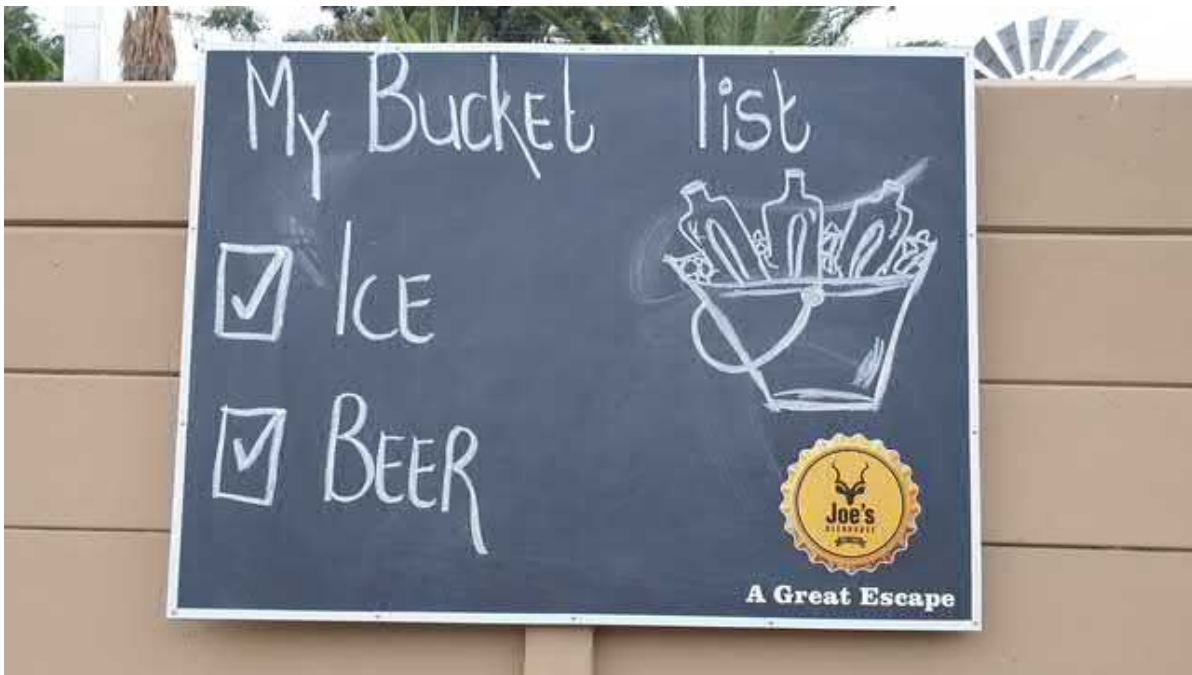 My Bucket list
ICE
BEER
Joe's
BEERHOUSE
A Great Escape